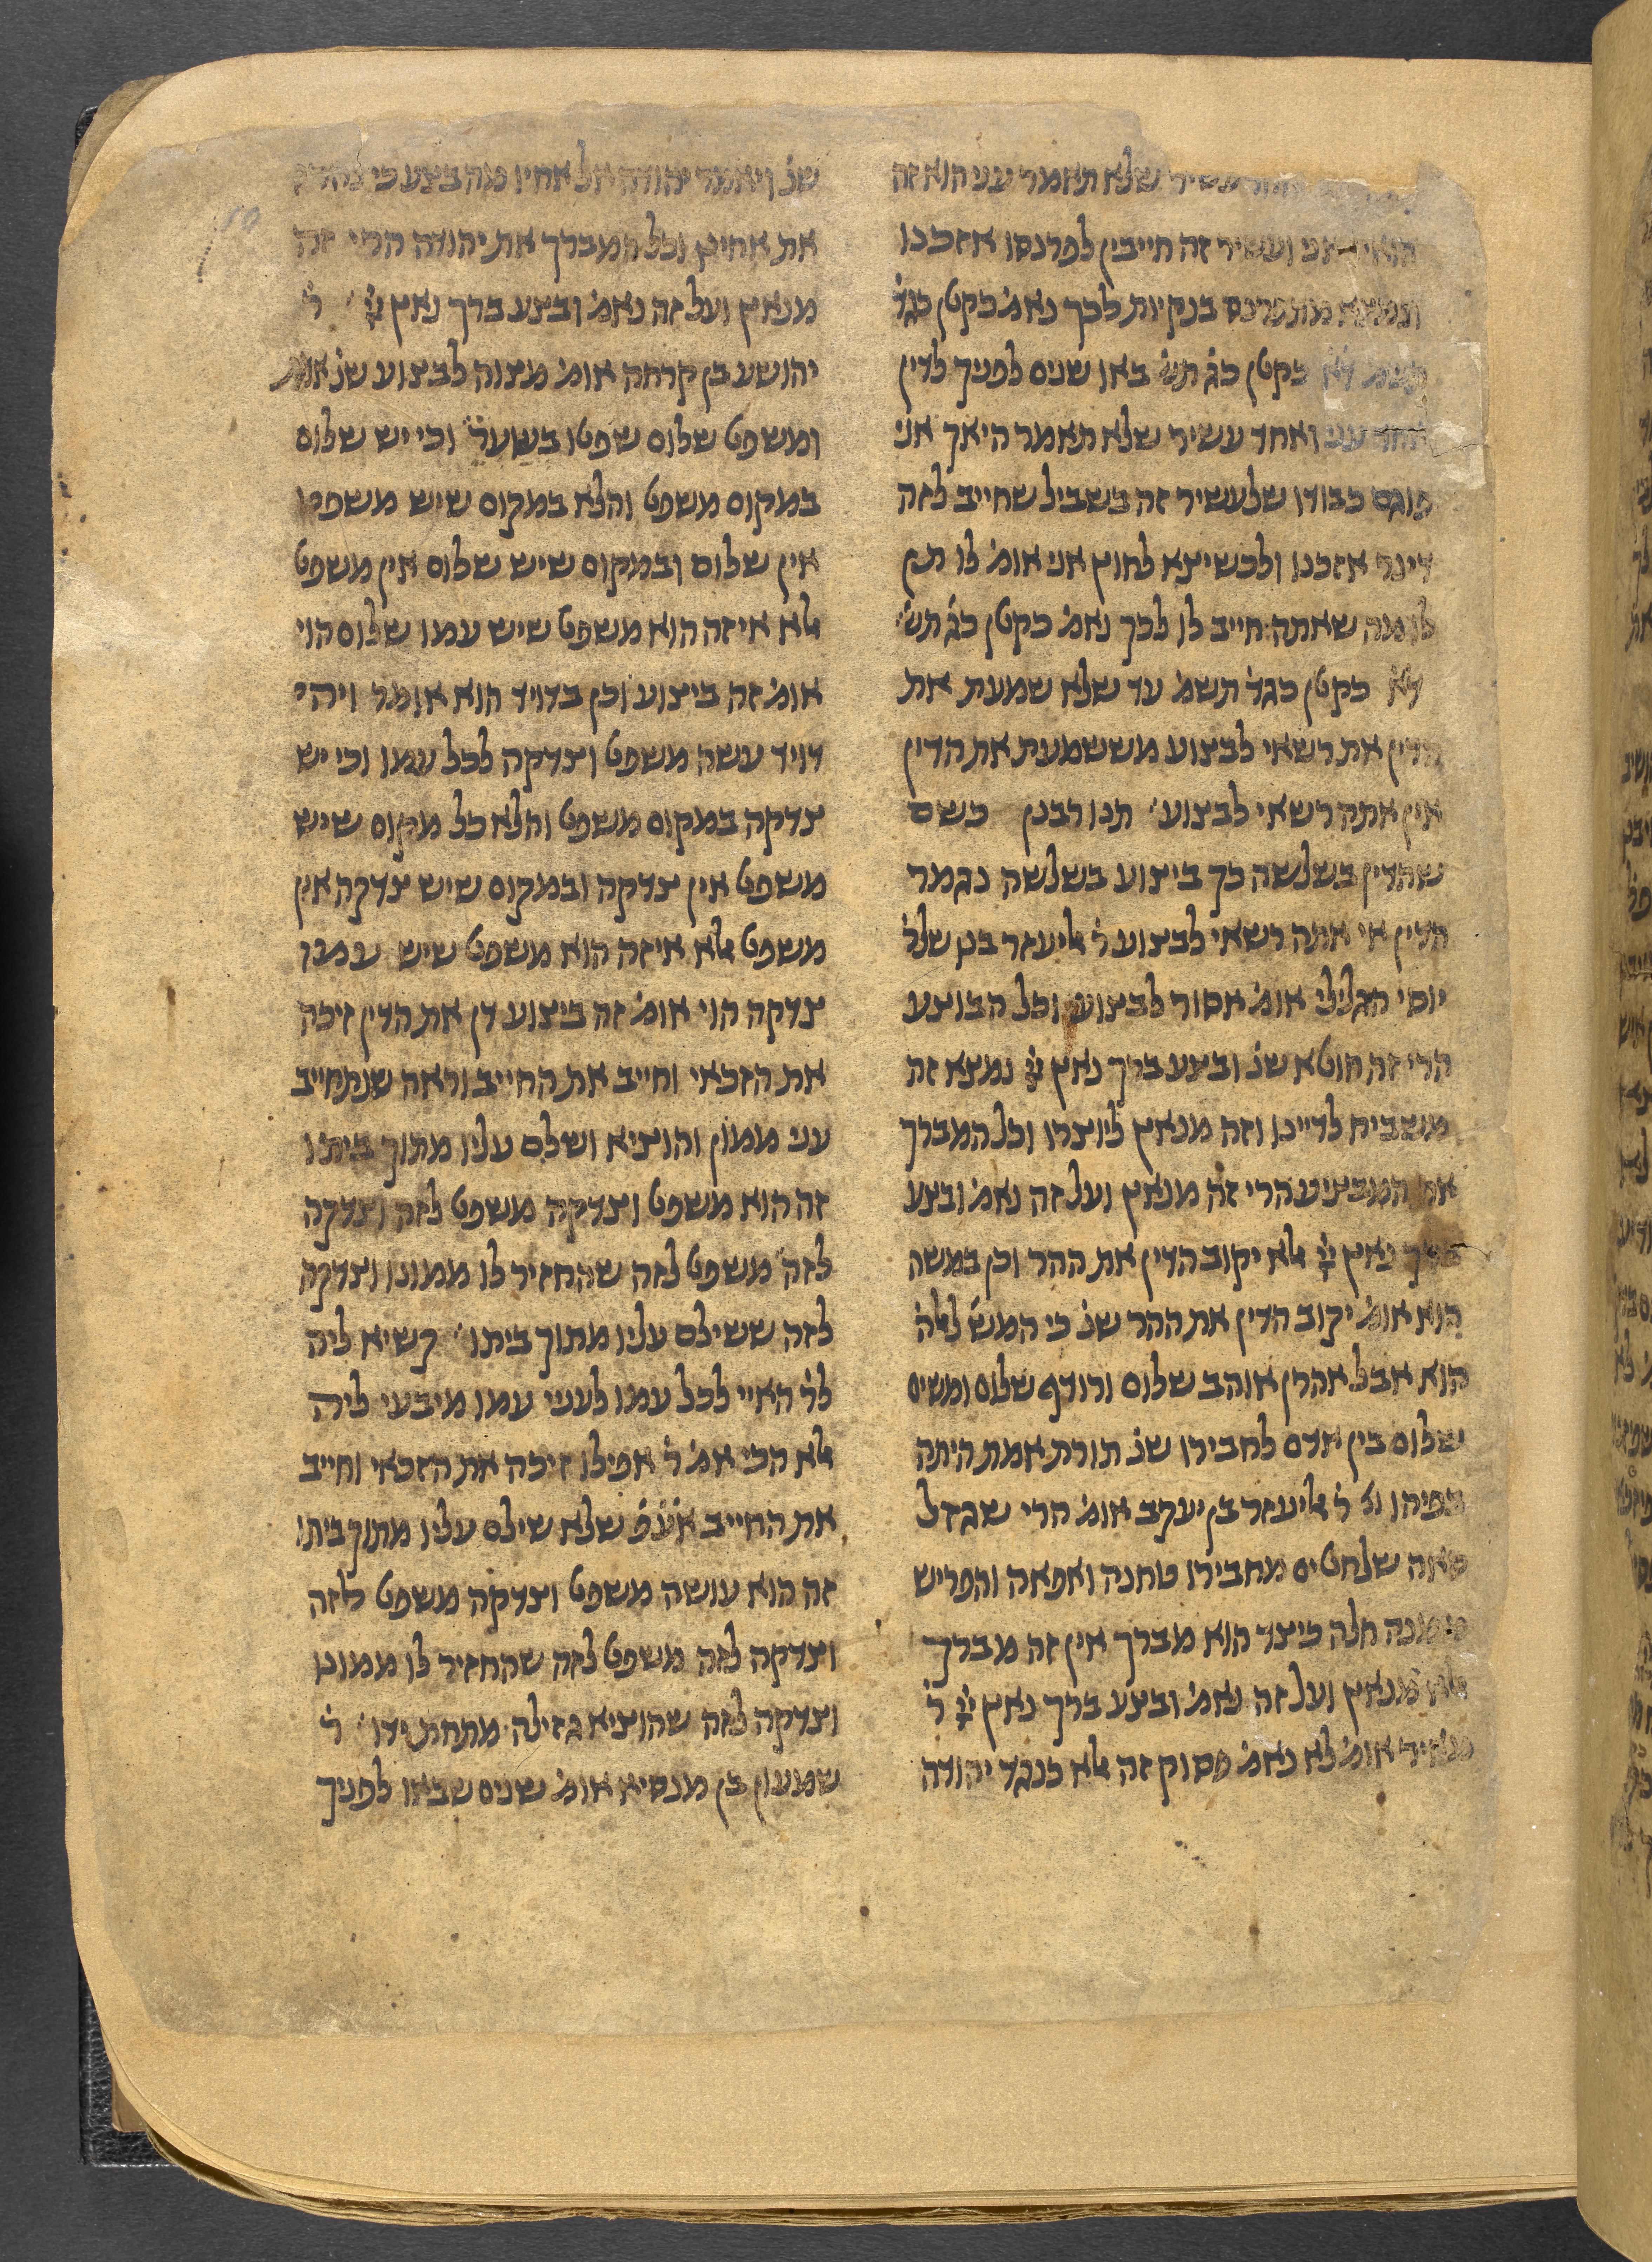 עשיר שלא תאמר עני הוא זה
הואיל ואני ועשיר זה חייבין לפרנסו אזכנו
ונמצא מתפרנס בנקיות לכך נאמ׳ כקטן כגד׳
תשמ׳ ד׳א׳ כקטן כג׳ תש׳ באו שנים לפניך לדין
אחד עני ואחד עשיר שלא תאמר היאך אני
פוגם כבודו שלעשיר זה בשביל שחייב לזה
דינר אזכנו ולכשיצא לחוץ אני אומ׳ לו תן
לו מה שאתה חייב לו לכך נאמ׳ כקטן כג׳ תש׳
ד׳א׳ כקטן כגד׳ תשמ׳ עד שלא שמעת את
הדין את רשאי לבצוע מששמעת את הדין
אין אתה רשאי לבצוע׳ תנו רבנן כשם
שהדין בשלשה כך ביצוע בשלשה נגמר
הדין אי אתה רשאי לבצוע ר׳ אליעזר בנו שלר׳
יוסי הגלילי אומ׳ אסור לבצוע וכל הבוצע
הרי זה חוטא שנ׳ ובצע ברך נאץ ייי נמצא זה
משביח לדיינו וזה מנאץ ליוצרו וכל המברך
את המבציע הרי זה מנאץ ועל זה נאמ׳ ובצע
ברך נאץ ייי אלא יקוב הדין את ההר וכן במשה
הוא אומ׳ יקוב הדין את ההר שנ׳ כי המש׳ לאלה׳
הוא אבל אהרן אוהב שלום ורודף שלום ומשים
שלום בין אדם לחבירו שנ׳ תורת אמת היתה
בפיהו וג׳ ר׳ אליעזר בן יעקב אומ׳ הרי שגזל
סאה שלחטים מחבירו טחנה ואפאה והפריש
ממנה חלה כיצד הוא מברך אין זה מברך
אלא מנאץ ועל זה נאמ׳ ובצע ברך נאץ ייי ר׳
מאיר אומ׳ לא נאמ׳ פסוק זה אלא כנגד יהודה
שנ׳ ויאמר יהודה אל אחיו מה בצע כי נהרג
את אחינו וכל המברך את יהודה הרי זה
מנאץ ועל זה נאמ׳ ובצע ברך נאץ ייי ר׳
יהושע בן קרחה אומ׳ מצוה לבצוע שנ׳ אמת
ומשפט שלום שפטו בשער׳ וכי יש שלום
במקום משפט והלא במקום שיש משפט
אין שלום ובמקום שיש שלום אין משפט
אלא איזה הוא משפט שיש עמו שלום הוי
אומ׳ זה ביצוע וכן בדויד הוא אומר ויהי
דויד עשה משפט וצדקה לכל עמו וכי יש
צדקה במקום משפט והלא כל מקום שיש
משפט אין צדקה ובמקום שיש צדקה אין
משפט אלא איזה הוא משפט שיש עמו
צדקה הוי אומ׳ זה ביצוע דן את הדין זיכה
את הזכאי וחייב את החייב וראה שנתחייב
עני ממון והוציא ושלם עליו מתוך ביתו
זה הוא משפט וצדקה משפט לזה וצדקה
לזה משפט לזה שהחזיר לו ממונו וצדקה
לזה ששילם עליו מתוך ביתו׳ קשיא ליה
לר׳ האיי לכל עמו לעניי עמו מיבעי ליה
אלא הכי אמ׳ ר׳ אפילו זיכה את הזכאי וחייב
את החייב א׳ע׳פ׳ שלא שילם עליו מתוך ביתו
זה הוא עושה משפט וצדקה משפט לזה
וצדקה לזה משפט לזה שהחזיר לו ממונו
וצדקה לזה שהוציא גזילה מתחת ידו׳ ר׳
שמעון בן מנסיא אומ׳ שנים שבאו לפניך